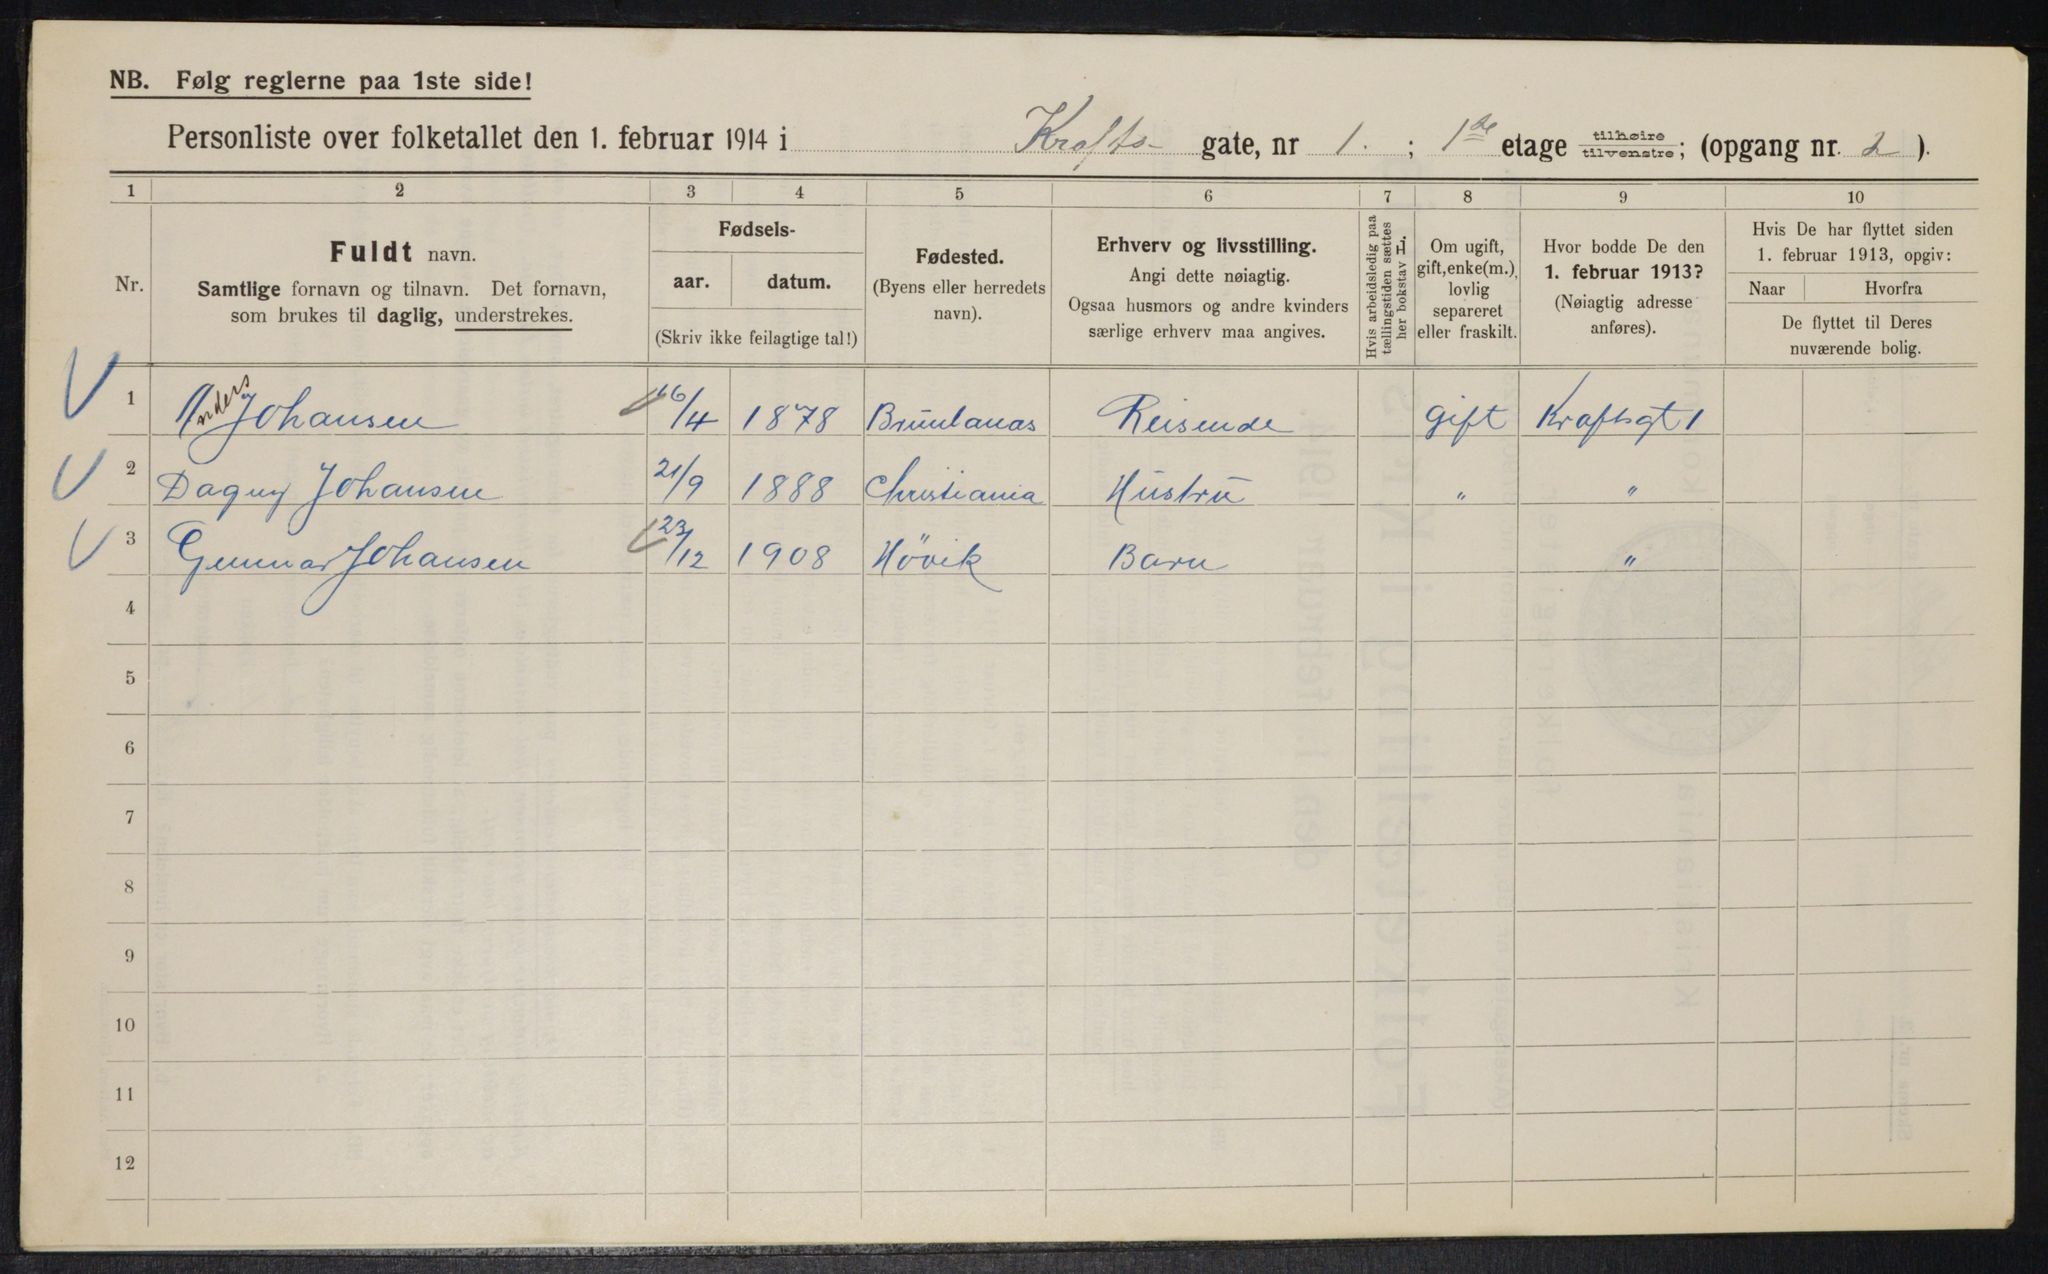 NB. Følg reglerne paa 1ste side!
Personliste over folketallet den 1. februar 1914 i Krafts- gate, nr 1. ; 1ste etage tilhøire tilvenstre; (opgang nr. 2 ).
1 2 3 4 5 6 7 8 9 10
Nr.
Fuldt navn.
Samtlige fornavn og tilnavn. Det fornavn,
som brukes til daglig, understrekes.
Fødsels-
aar. datum.
(Skriv ikke feilagtige tal!)
Fødested.
(Byens eller herredets
navn).
Erhverv og livsstilling.
Angi dette nøiagtig.
Ogsaa husmors og andre kvinders
særlige erhverv maa angives.
Hvis arbeidsledig paa
tællingstiden sættes
her bokstav L.
Om ugift,
gift, enke(m.),
lovlig
separeret
eller fraskilt.
Hvor bodde De den
1. februar 1913?
(Nøiagtig adresse
anføres).
Hvis De har flyttet siden
1. februar 1913, opgiv:
Naar Hvorfra
De flyttet til Deres
nuværende bolig.
1 Anders Johansen 16/4 1878 Brunlanas Reisende gift Kraftsgt 1
2 Dagny Johansen 21/9 1888 Christiania Hustru " "
3 Gunnar Johansen 23/12 1908 Høvik Barn "
4
5
6
7
8
9
10
11
12